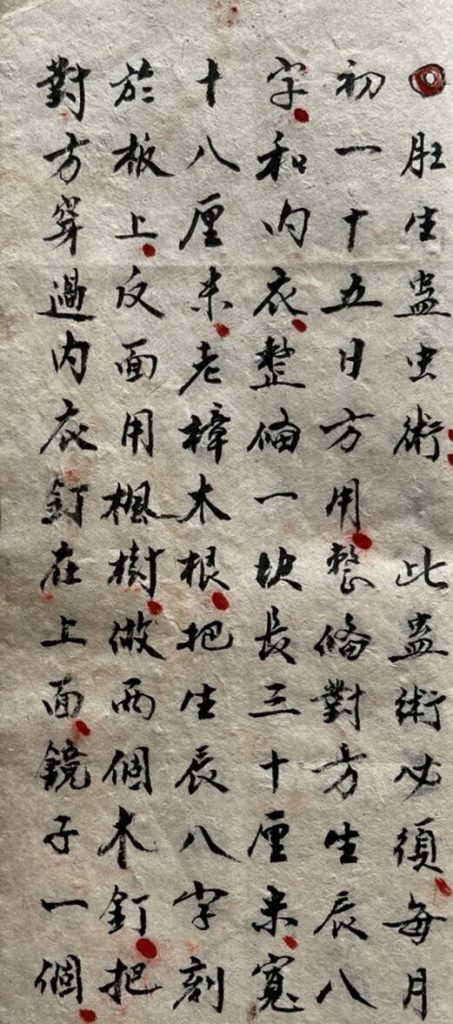 肚生蛊虫術 此蛊術必須每月
初一十五日方用整偹對方生辰八
字和内衣整偹一块長三十厘米寬
十八厘米老樟木根把生辰八字刻
於板上反面用楓樹做两個木釘把
對方穿過内衣釘在上面鏡子一個